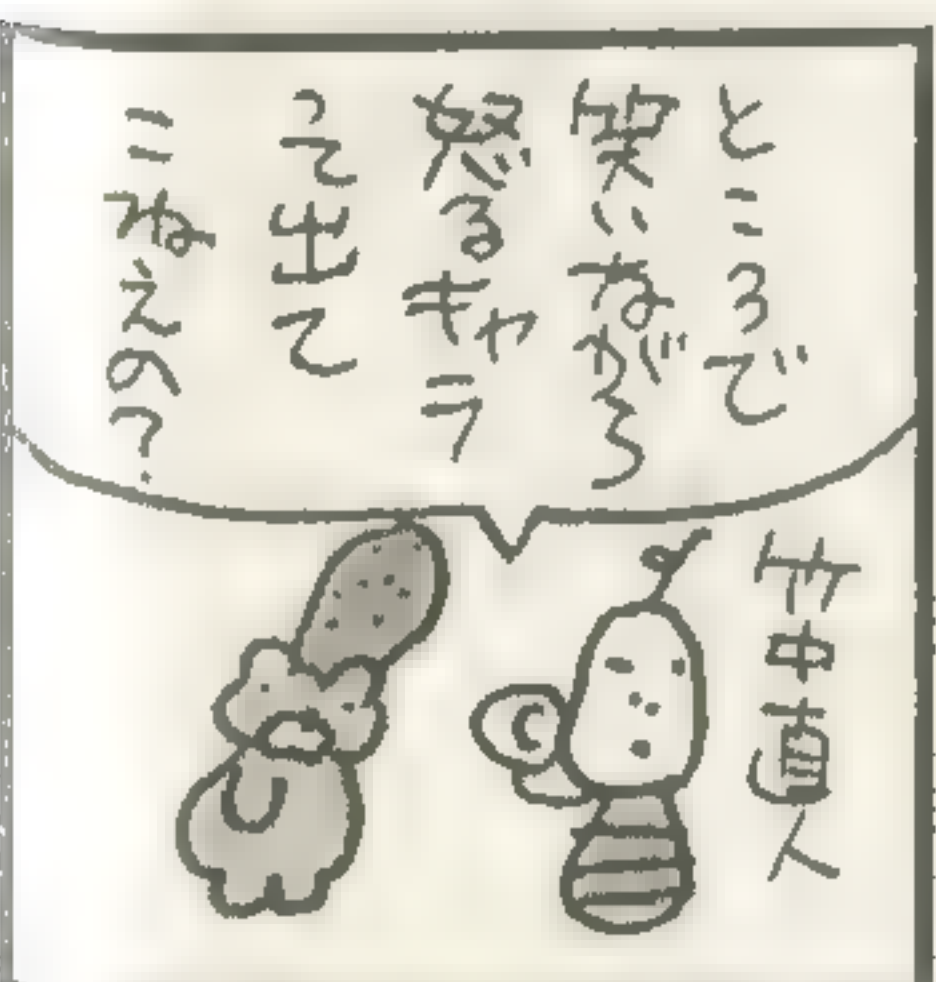 ところで
笑いながら
怒るキャラ
って出て
こねえの?
竹中直人